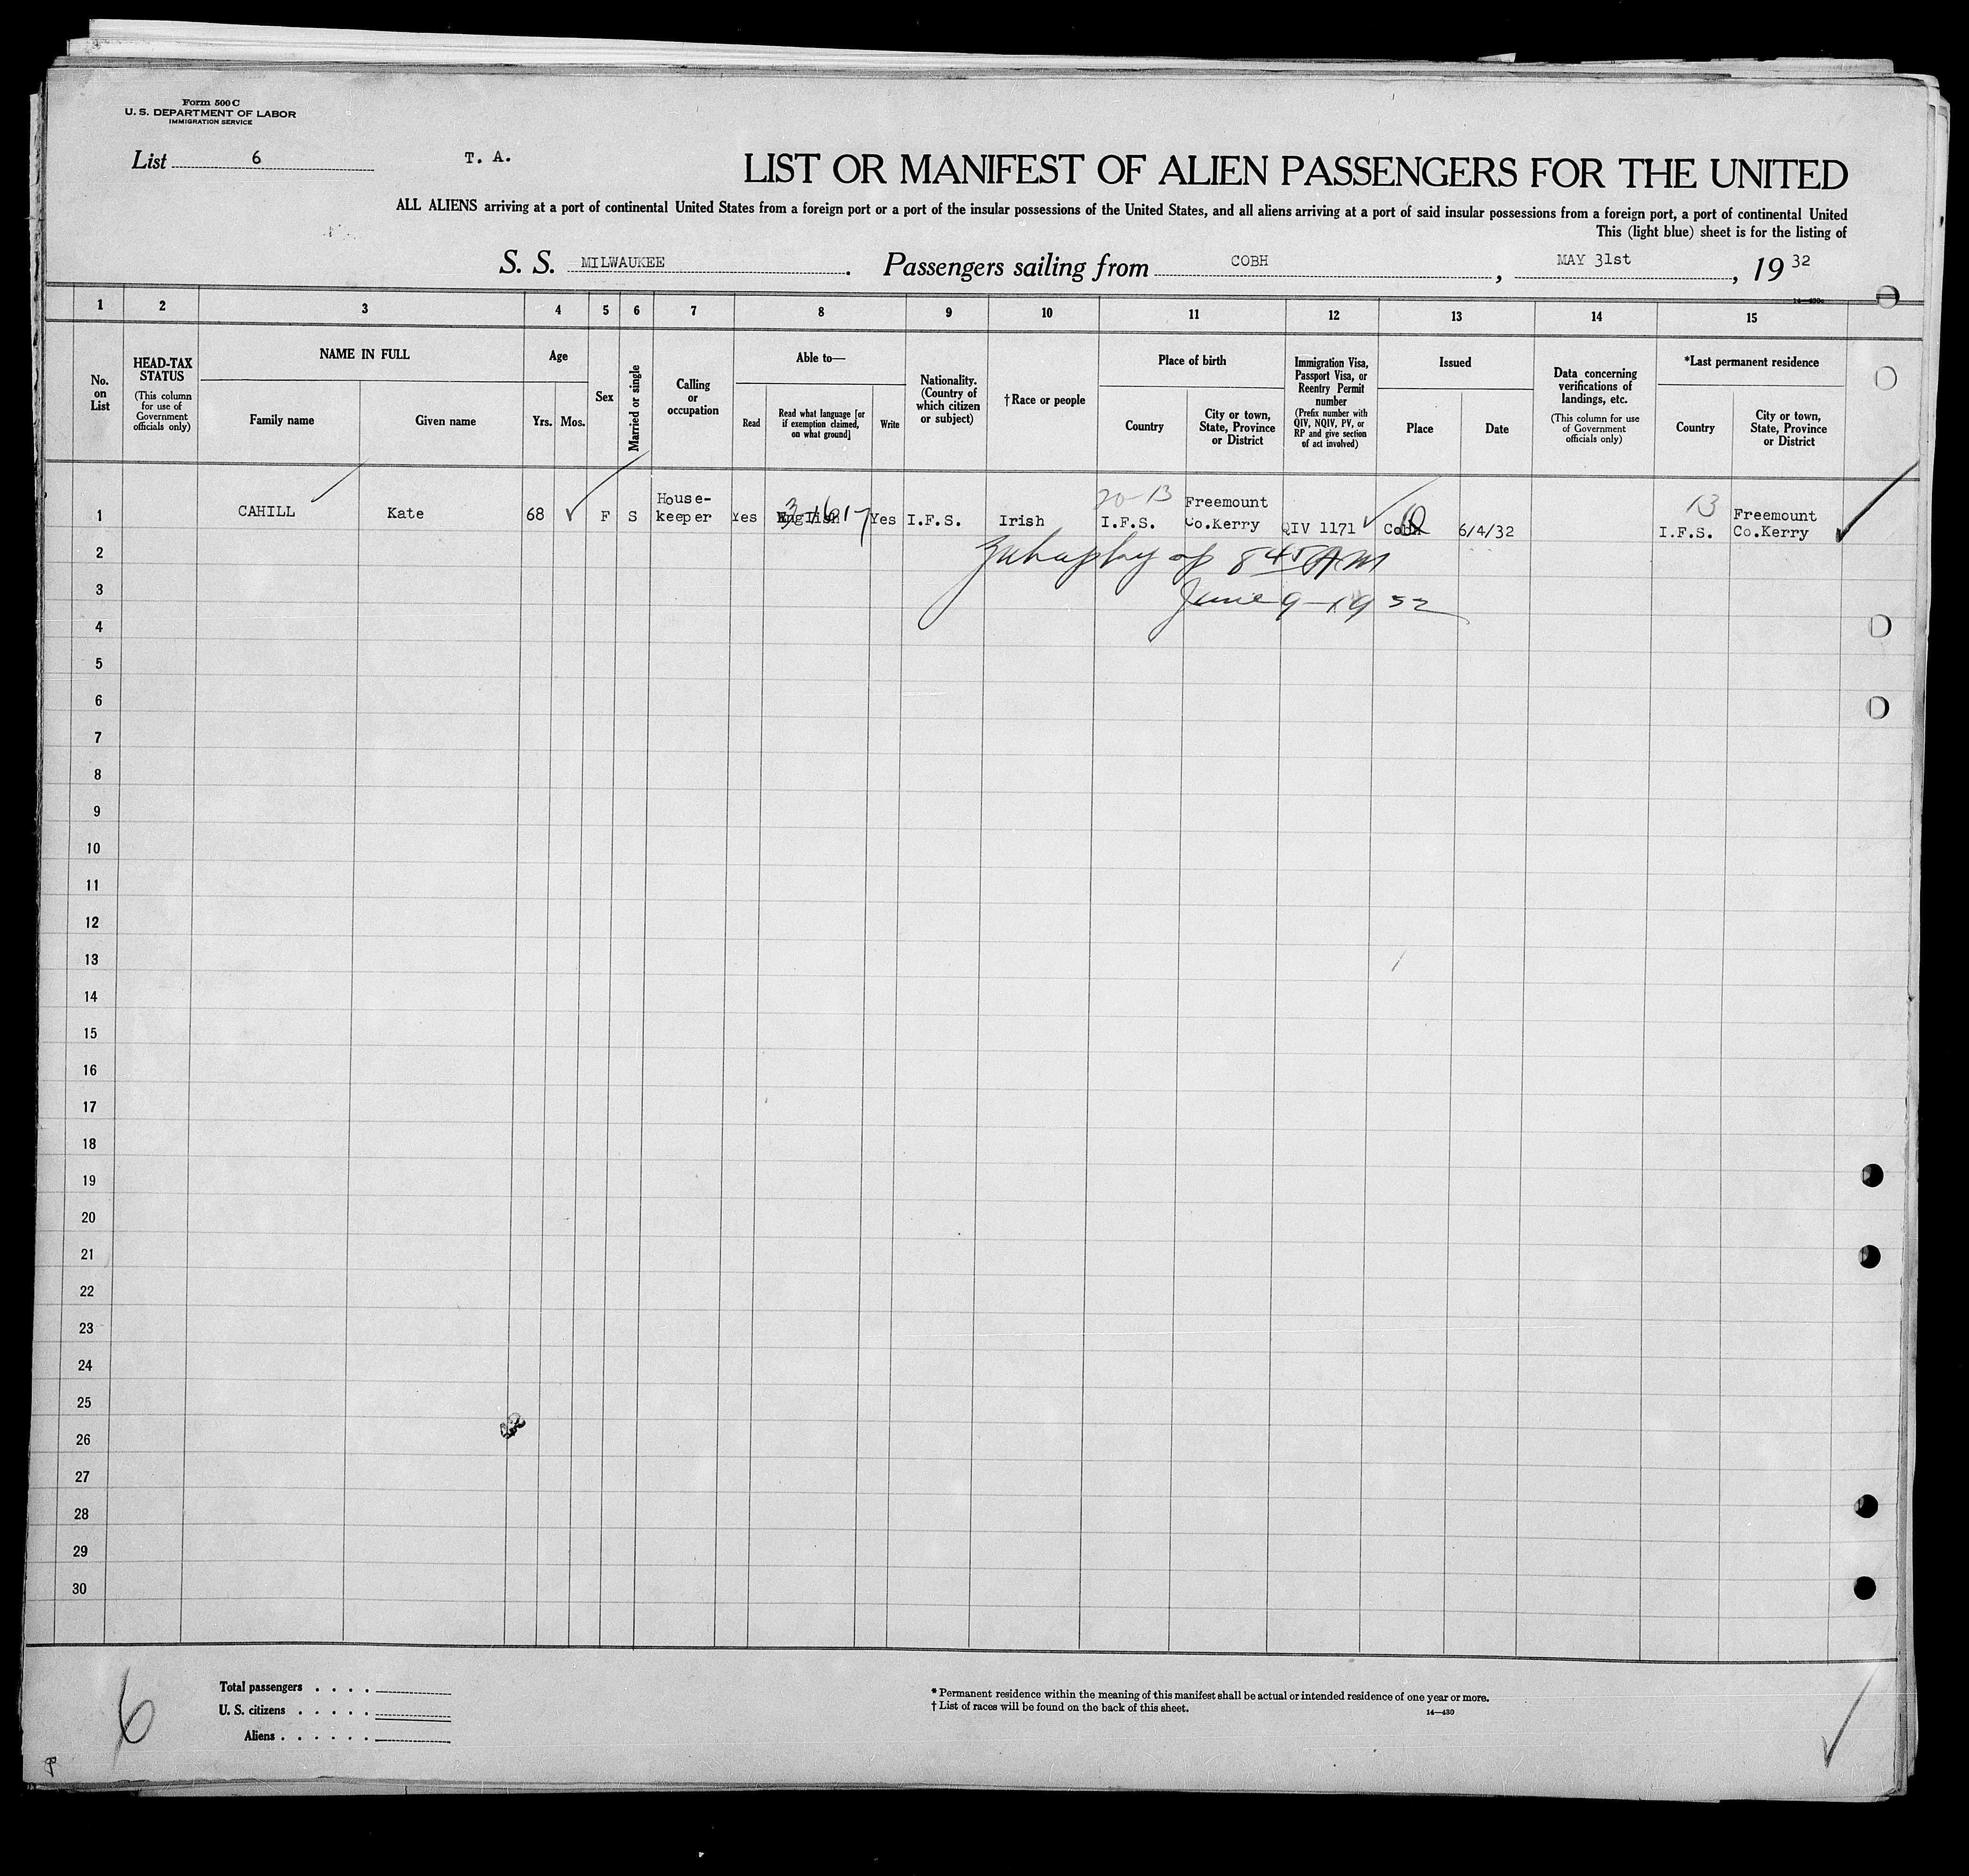 Form 500 C
U. S. DEPARTMENT OF LABOR
IMMIGRATION SERVICE
List 6 T. A.
LIST OR MANIFEST OF ALIEN PASSENGERS FOR THE UNITED
ALL ALIENS arriving at a port of continental United States from a foreign port or a port of the insular possessions of the United States, and all aliens arriving at a port of said insular possessions from a foreign port, a port of continental United
This (light blue) sheet is for the listing of
S. S. MILWAUKEE. Passengers sailing from COBH, MAY 31st, 19 32
14—430c
1 2 3 4 5 6 7 8 9 10 11 12 13 14 15
No. on List
HEAD-TAX STATUS
(This column for use of Government officials only)
NAME IN FULL
Family name
Given name
Age
Yrs. Mos.
Sex
Married or single
Calling or occupation
Able to—
Read
Read what language [or if exemption claimed, on what ground]
Write
Nationality. (Country of which citizen or subject)
†Race or people
Place of birth
Country
City or town, State, Province or District
Immigration Visa, Passport Visa, or Reentry Permit number
(Prefix number with QIV, NQIV, PV, or RP and give section of act involved)
Issued
Place
Date
Data concerning verifications of landings, etc.
(This column for use of Government officials only)
*Last permanent residence
Country
City or town, State, Province or District
20-13 13
1 CAHILL Kate 68 F S House-keeper Yes English Yes I.F.S. Irish I.F.S. Freemount Co.Kerry QIV 1171 Cobh 6/4/32 I.F.S. Freemount Co.Kerry
2 8 45 AM
3 June 9-1932
4
5
6
7
8
9
10
11
12
13
14
15
16
17
18
19
20
21
22
23
24
25
26
27
28
29
30
6
Total passengers . . . .
U. S. citizens . . . . .
Aliens . . . . . .
* Permanent residence within the meaning of this manifest shall be actual or intended residence of one year or more.
† List of races will be found on the back of this sheet.
14—430